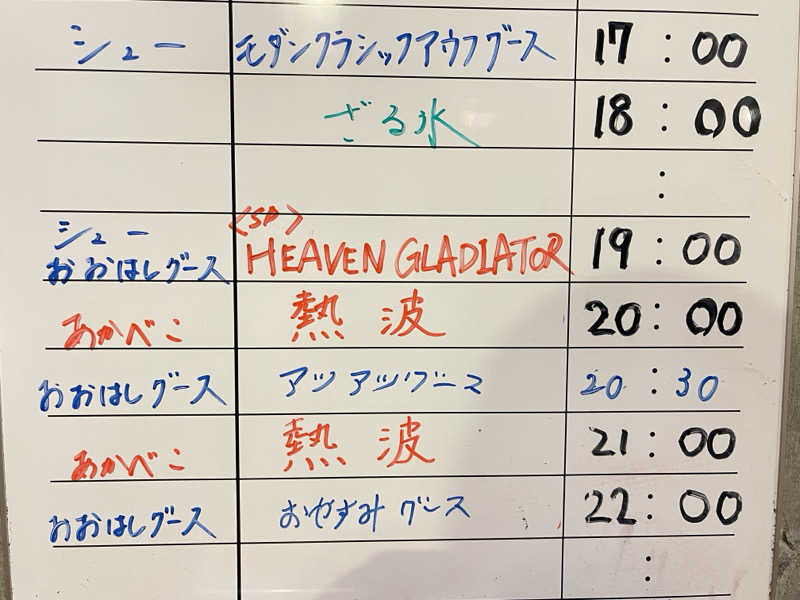 シュー モダンクラシックアウフグース 17:00
ざる氷 18:00
:
<SP>
シュー
おおはしグース HEAVEN GLADIATOR 19:00
あかべこ 熱波 20:00
おおはしグース アツアツグース 20:30
あかべこ 熱波 21:00
おおはしグース おやすみグース 22:00
: